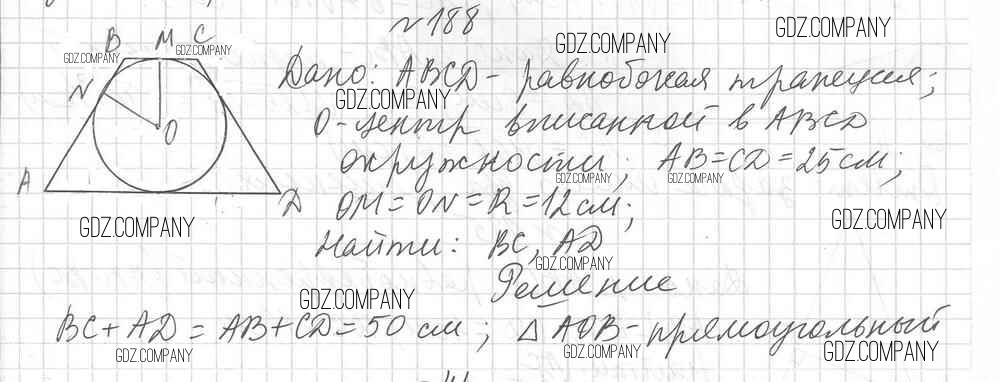 №188
B M C
GDZ.COMPANY GDZ.COMPANY
GDZ.COMPANY
GDZ.COMPANY
N
Дано: ABCD - равнобокая трапеция;
GDZ.COMPANY
O
O - центр вписанной в ABCD
окружности; AB=CD=25см;
GDZ.COMPANY GDZ.COMPANY
A
D
OM=ON=R=12см;
GDZ.COMPANY
GDZ.COMPANY
Найти: BC, AD
GDZ.COMPANY
Решение
GDZ.COMPANY
BC+AD=AB+CD=50 см; △AOB - прямоугольный
GDZ.COMPANY GDZ.COMPANY GDZ.COMPANY